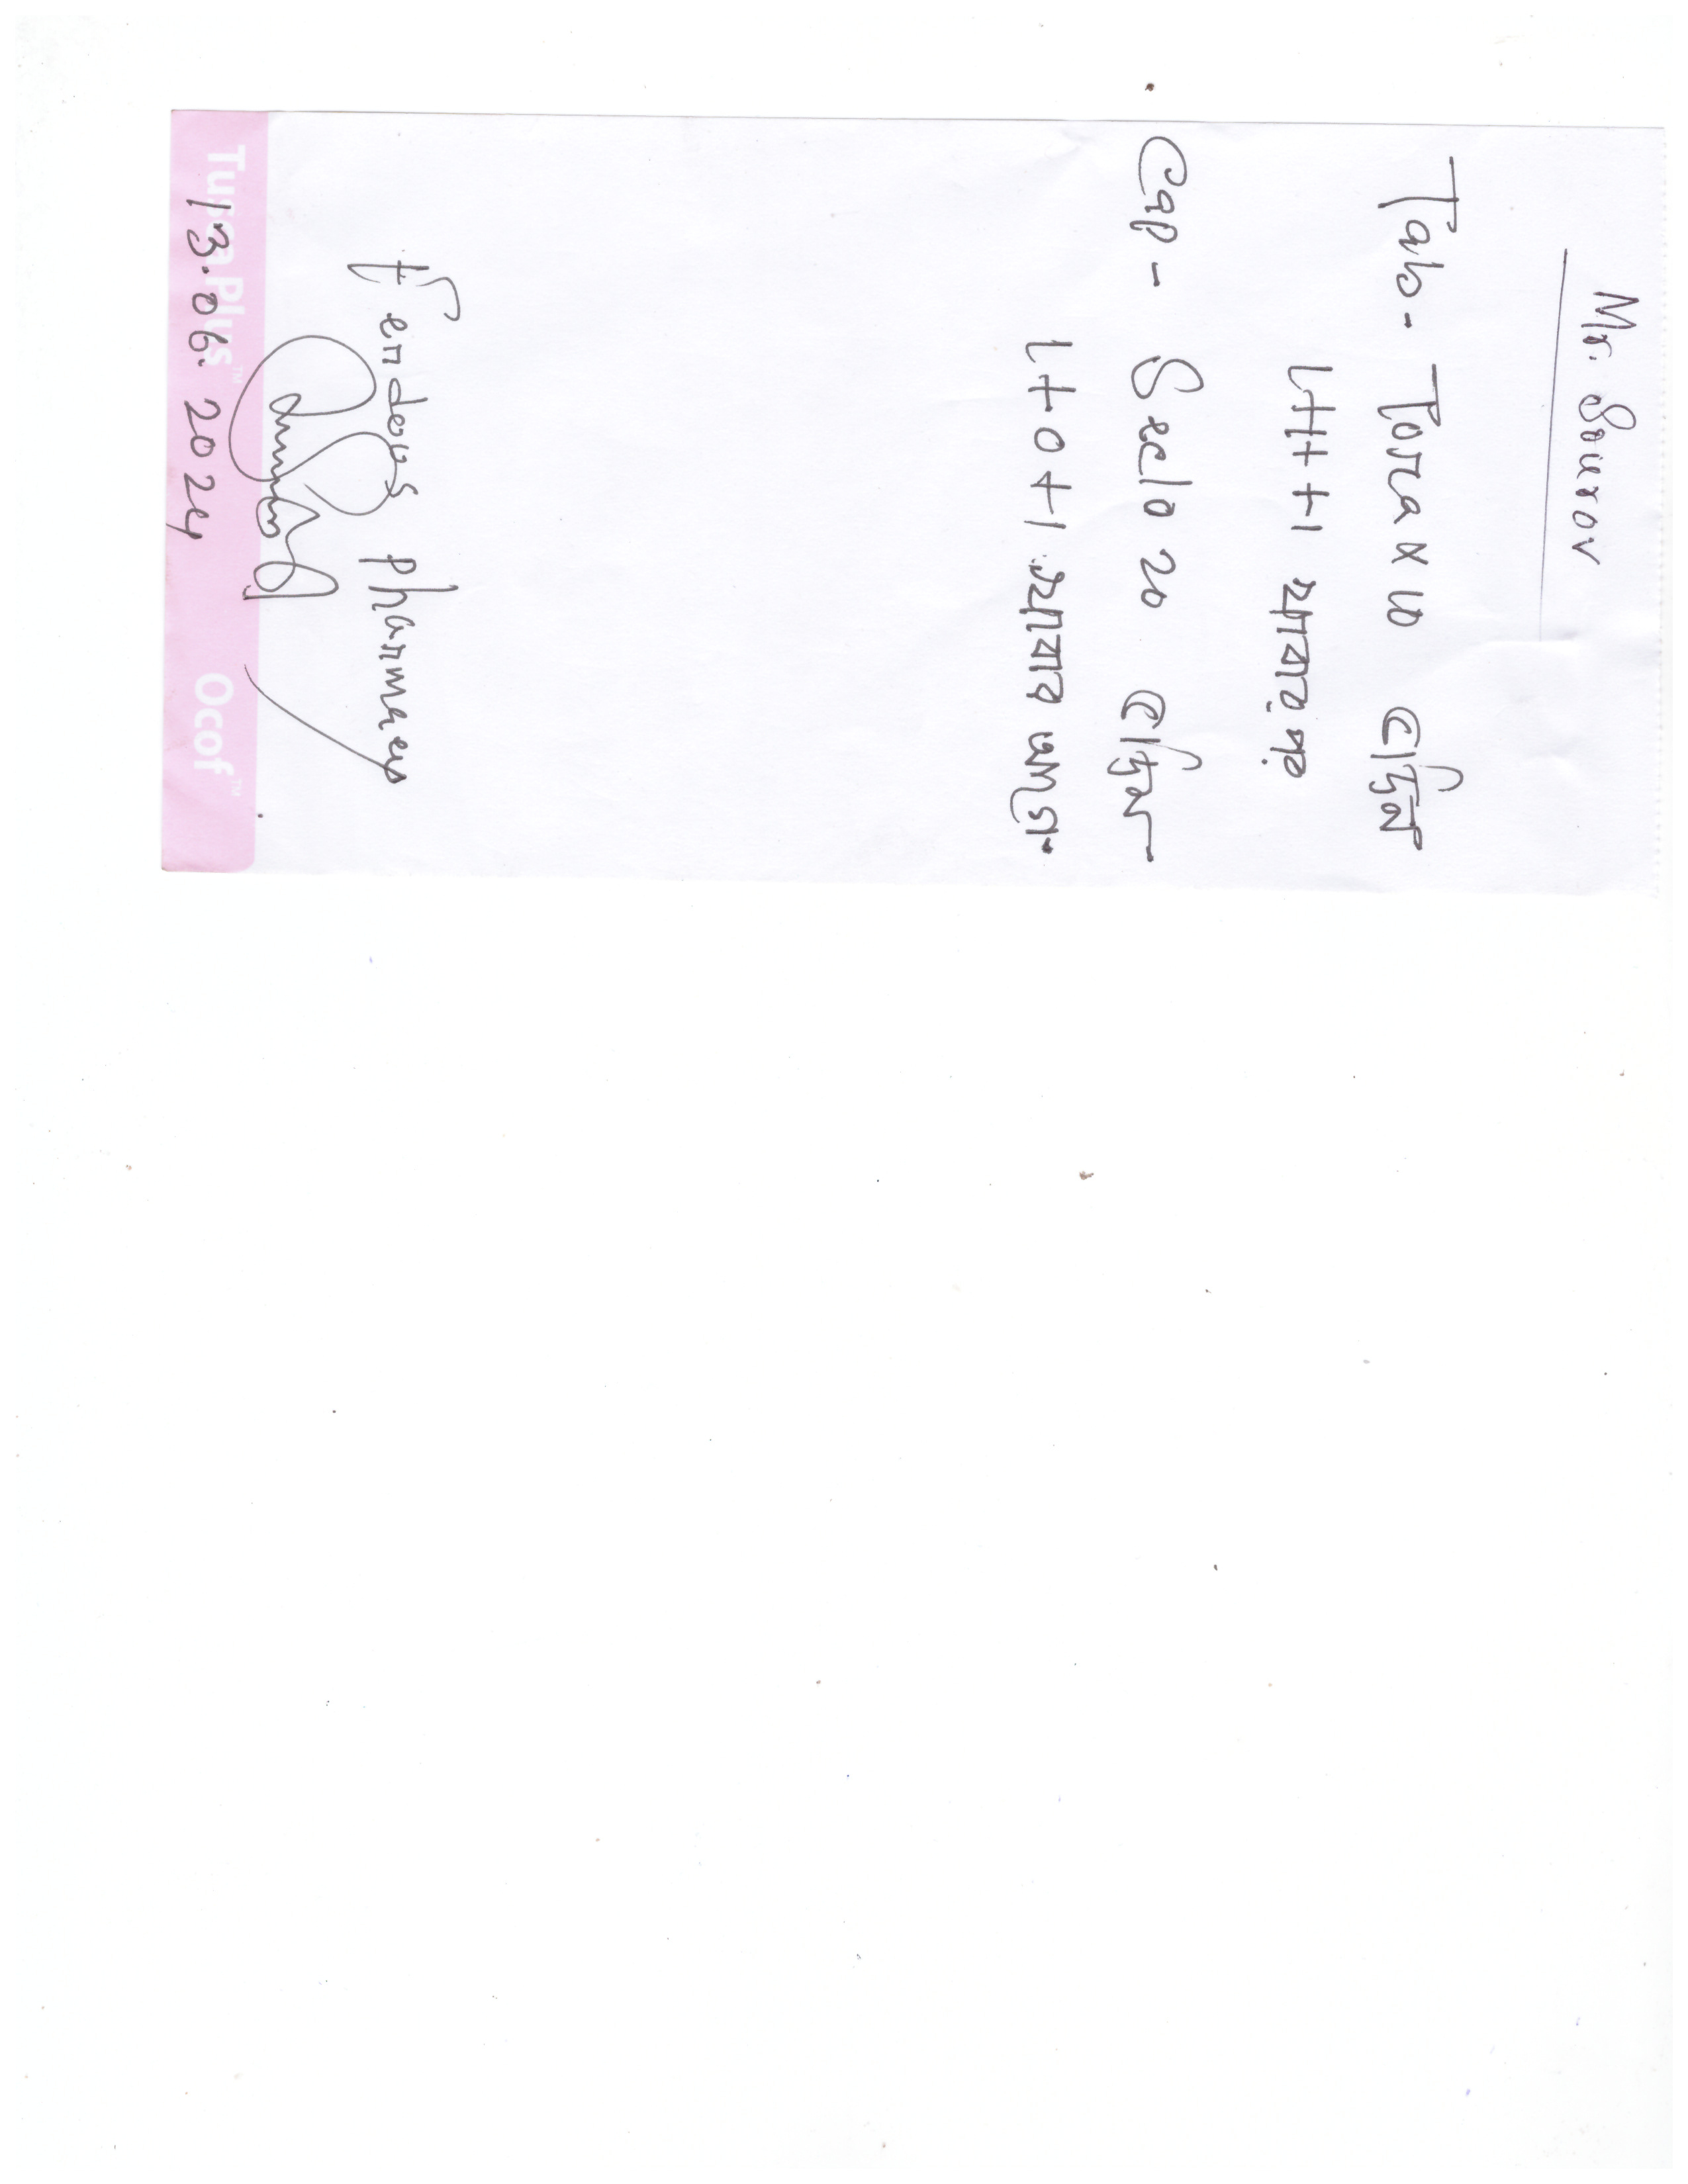 Mr. Sourov
Tab - Torax 10 ৫দিন
1+1+1 খাবার পর
Cap - Seclo 20 ৫দিন
1+0+1 খাবার আগে
Ferdous Pharmacy
13.06.2024
Tusca Plus™ Ocof™